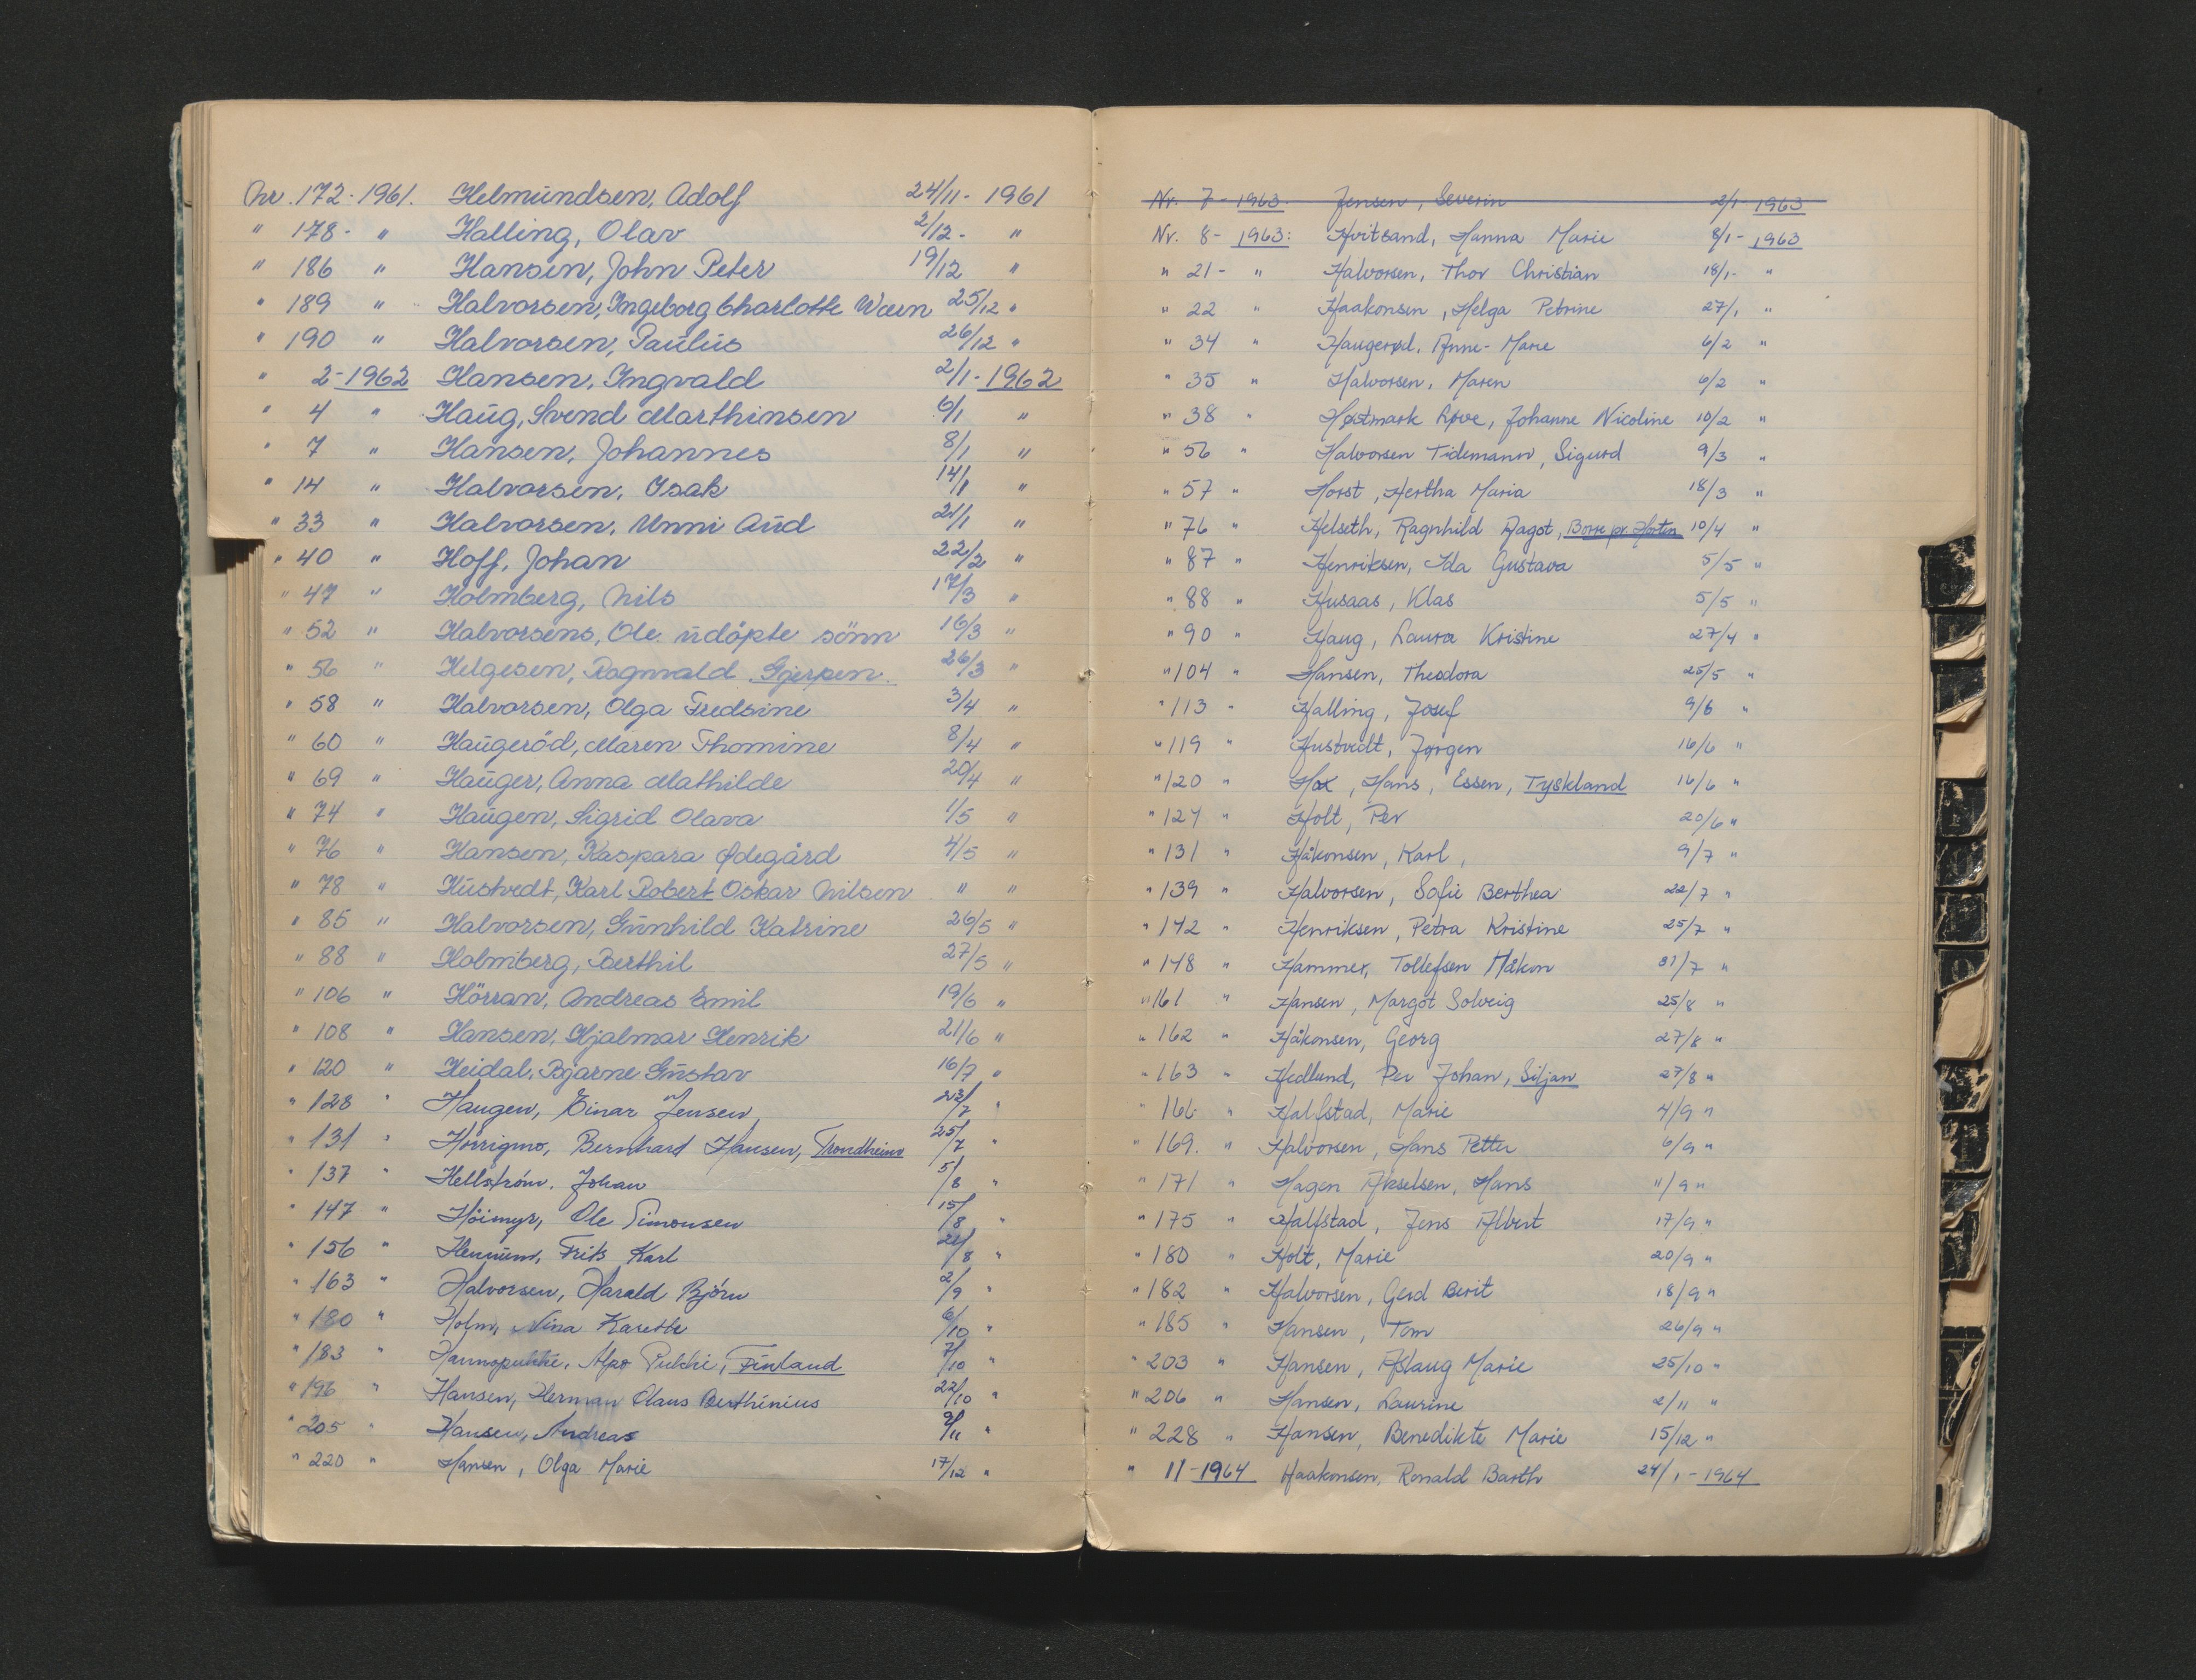 Nr. 172 - 1961. Helmundsen, Adolf 24/11 - 1961
" 178 - " Halling, Olav 2/12 - "
" 186 " Hansen, John Peter 19/12 "
" 189 " Halvorsen, Ingeborg Charlotte Wærn 25/12 "
" 190 " Halvorsen, Paulus 26/12 "
" 2 - 1962 Hansen, Ingvald 2/1 - 1962
" 4 " Haug, Svend Marthinsen 6/1 "
" 7 " Hansen, Johannes 8/1 "
" 14 " Halvorsen, Isak 14/1 "
" 33 " Halvorsen, Unni Aud 21/1 "
" 40 " Hoff, Johan 22/2 "
" 47 " Holmberg, Nils 17/3 "
" 52 " Halvorsens, Ole udöpte sönn 16/3 "
" 56 " Helgesen, Ragnvald Gjerpen. 26/3 "
" 58 " Halvorsen, Olga Fredsine 3/4 "
" 60 " Haugeröd, Maren Thomine 8/4 "
" 69 " Hauger, Anna Mathilde 20/4 "
" 74 " Haugen, Sigrid Olava 1/5 "
" 76 " Hansen, Kaspara Ødegård 4/5 "
" 78 " Hustvedt, Karl Robert Oskar Nilsen " "
" 85 " Halvorsen, Gunhild Katrine 26/5 "
" 88 " Holmberg, Berthil 27/5 "
" 106 " Hörran, Andreas Emil 19/6 "
" 108 " Hansen, Hjalmar Henrik 21/6 "
" 120 " Heidal, Bjarne Gustav 16/7 "
" 128 " Haugen, Einar Jensen, 23/7 "
" 131 " Hörrigmo, Bernhard Hansen, Trondheim 25/7 "
" 137 " Hellström, Johan 5/8 "
" 147 " Höimyr, Ole Simonsen 15/8 "
" 156 " Hennum, Frits Karl 21/8 "
" 163 " Halvorsen, Harald Björn 2/9 "
" 180 " Holm, Nina Karette 6/10 "
" 183 " Alpo Pukki, Finland 7/10 "
" 196 " Hansen, Herman Olaus Berthinius 22/10 "
" 205 " Hansen, Andreas 9/11 "
" 220 " Hansen, Olga Marie 17/12 "
Nr. 7 - 1963. Jensen, Severin 2/1 - 1963
Nr. 8 - 1963: Hvitsand, Hanna Marie 8/1 - 1963
" 21 - " Halvorsen, Thor Christian 18/1 - "
" 22 " Haakonsen, Helga Petrine 27/1 "
" 34 " Haugerød, Anne-Marie 6/2 "
" 35 " Halvorsen, Maren 6/2 "
" 38 " Høstmark Løve, Johanne Nicoline 10/2 "
" 56 " Halvorsen Tidemann, Sigurd 9/3 "
" 57 " Horst, Hertha Maria 18/3 "
" 76 " Helseth, Ragnhild Dagot, Borre pr. Horten 10/4 "
" 87 " Henriksen, Ida Gustava 5/5 "
" 88 " Husaas, Klas 5/5 "
" 90 " Haug, Laura Kristine 27/4 "
" 104 " Hansen, Theodora 25/5 "
" 113 " Halling, Josef 9/6 "
" 119 " Hustvedt, Jørgen 16/6 "
" 120 " Hox, Hans, Essen, Tyskland 16/6 "
" 127 " Holt, Per 20/6 "
" 131 " Håkonsen, Karl, 9/7 "
" 139 " Halvorsen, Sofie Berthea 22/7 "
" 142 " Henriksen, Petra Kristine 25/7 "
" 148 " Hammer, Tollefsen Håkon 31/7 "
" 161 " Hansen, Margot Solveig 25/8 "
" 162 " Håkonsen, Georg 27/8 "
" 163 " Hedlund, Per Johan, Siljan 27/8 "
" 166 " Halfstad, Marie 4/9 "
" 169. " Halvorsen, Hans Petter 6/9 "
" 171 " Hagen Akselsen, Hans 11/9 "
" 175 " Halfstad, Jens Albert 17/9 "
" 180 " Holt, Marie 20/9 "
" 182 " Halvorsen, Gerd Berit 18/9 "
" 185 " Hansen, Tom 26/9 "
" 203 " Hansen, Aslaug Marie 25/10 "
" 206 " Hansen, Laurine 2/11 "
" 228 " Hansen, Benedikte Marie 15/12 "
" 11 - 1964 Haakonsen, Ronald Barth 24/1 - 1964